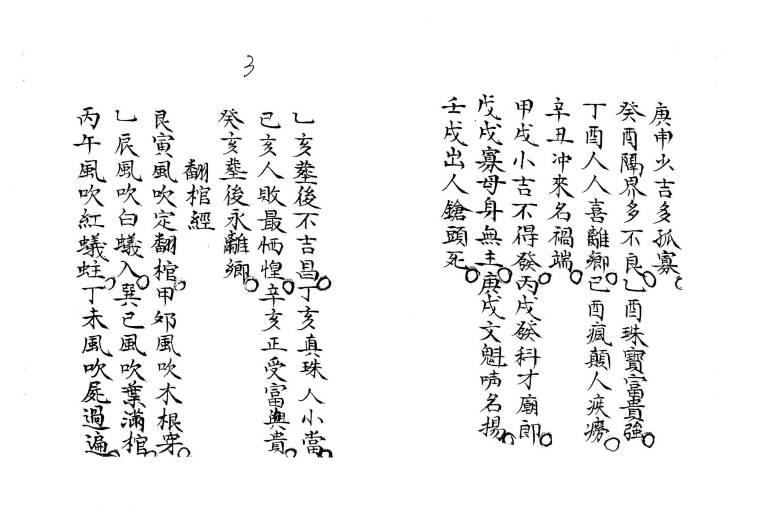 庚申少吉多孤寡
癸酉隔界多不良乙酉珠寶富貴強
丁酉人人喜離鄉己酉瘋顛人疾癆
辛丑冲來名禍端
甲戌小吉不得發丙戌發科才廟郎
戊戌寡母身無主庚戌文魁名揚
壬戌出人鎗頭死
3
乙亥塟後不吉昌丁亥真珠人小當
己亥人敗最恓惶辛亥正受富與貴
癸亥塟後永離鄉
翻棺經
艮寅風吹定翻棺甲夘風吹木根穿
乙辰風吹白蟻入巽己風吹葉滿棺
丙午風吹紅蟻蛀丁未風吹屍過遍